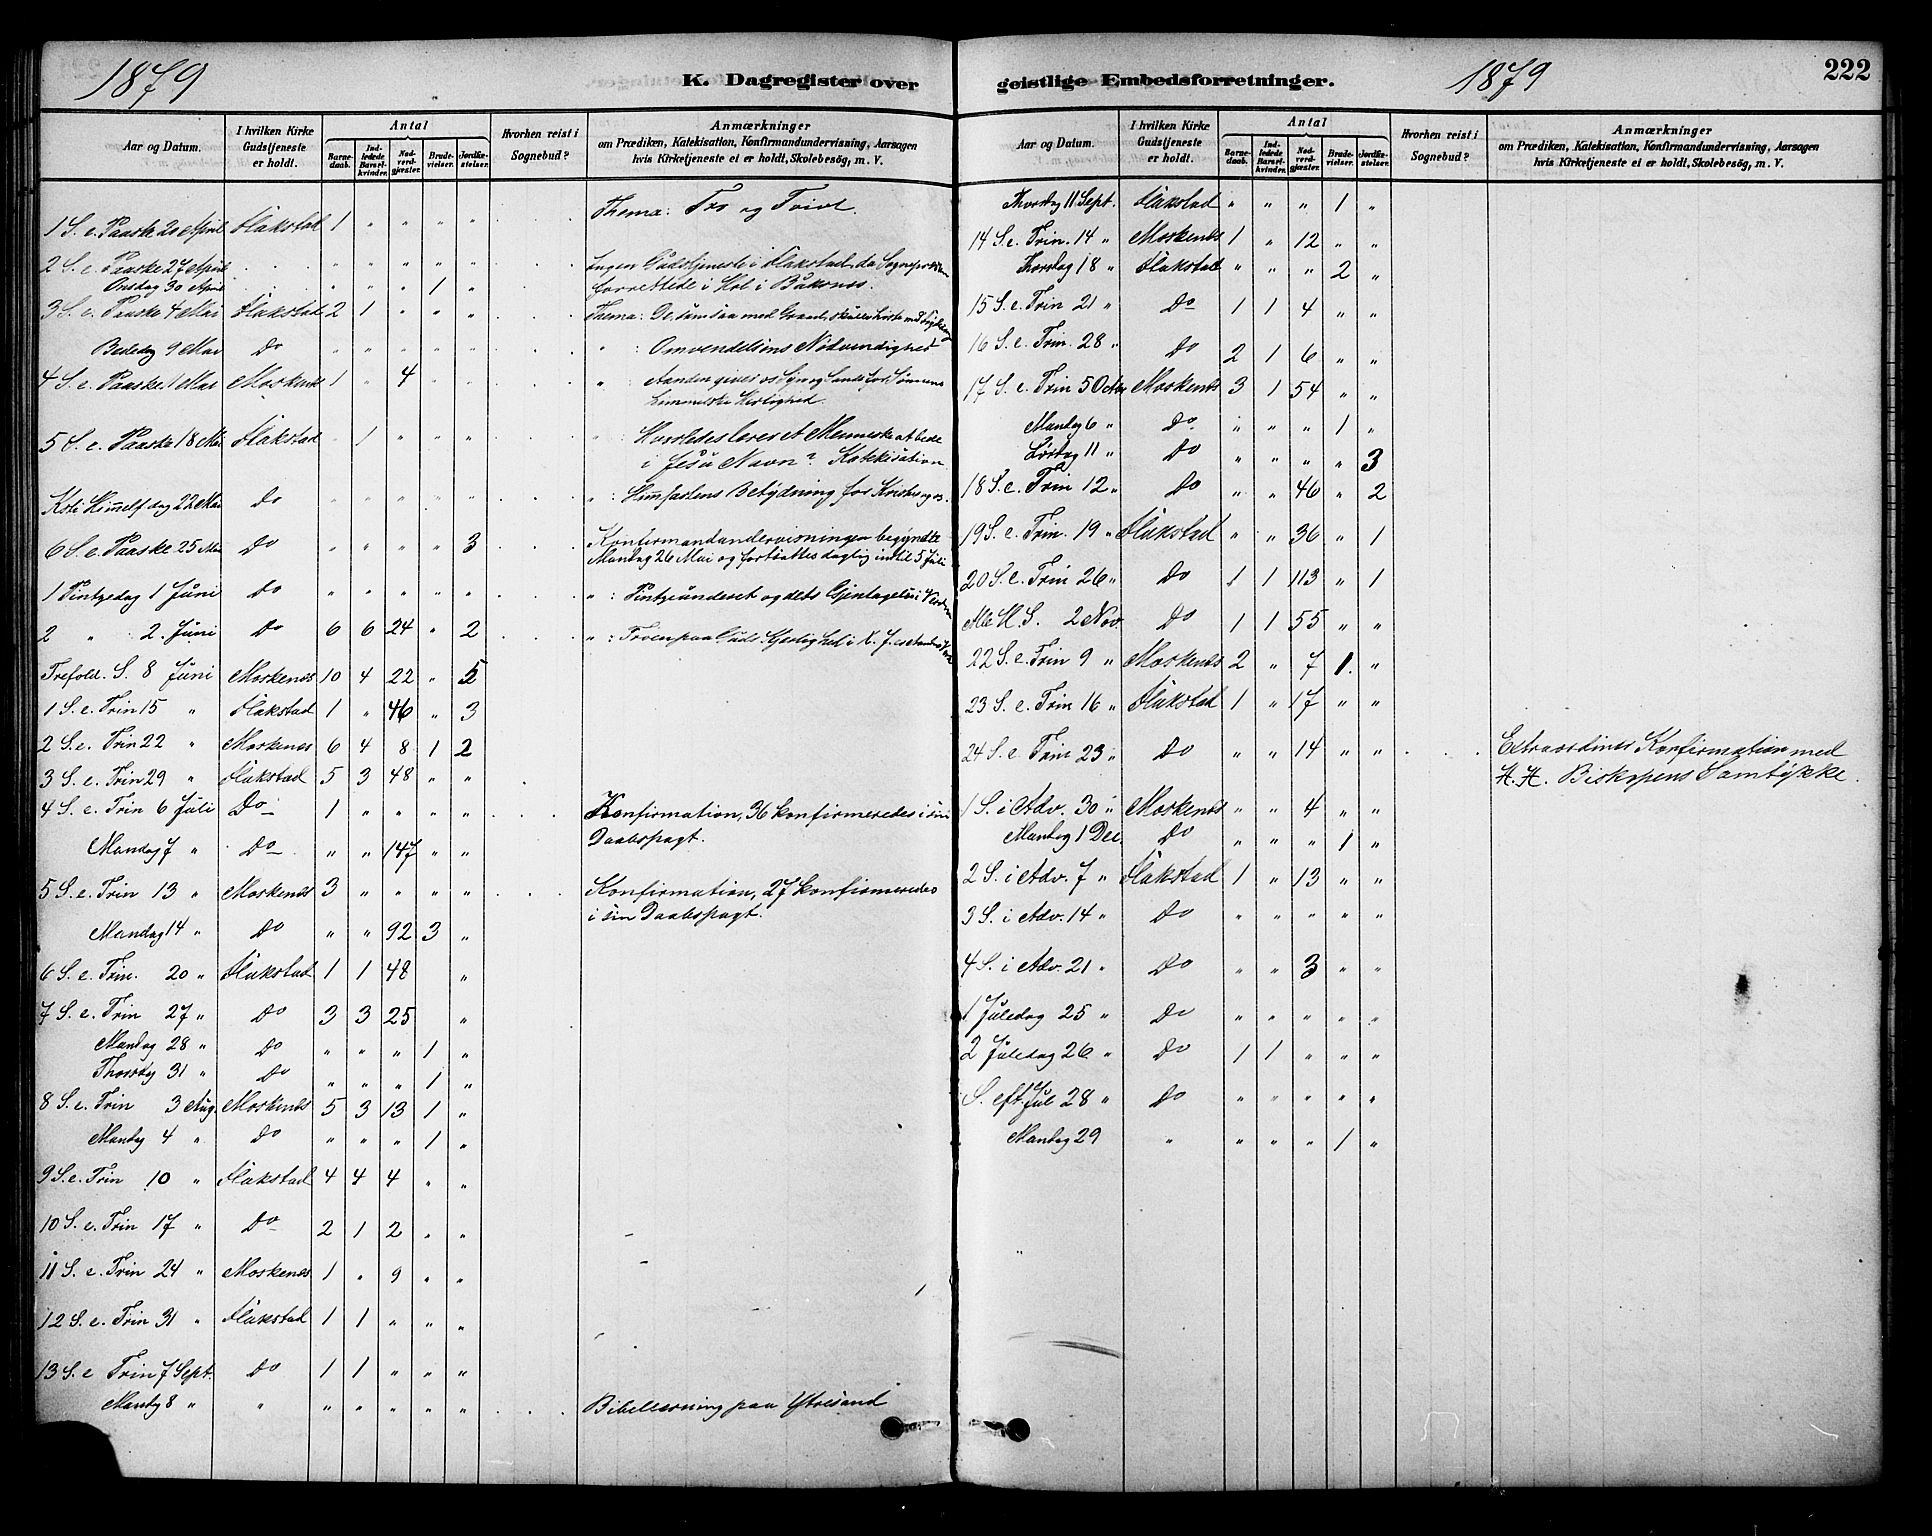 1879
K. Dagregister over
Aar og Datum. I hvilken Kirke Gudstjeneste er holdt. Antal Barnedaab. Indledede Barselkvinder. Nadverdgjæster. Brudevielser. Jordfæstelser. Hvorhen reist i Sognebud? Anmærkninger om Prædiken, Katekisation, Konfirmandundervisning, Aarsagen hvis Kirketjeneste ei er holdt, Skolebesög, m. V.
1 S. e. Paaske 20 April Flakstad 1 " " " " Thema: Tro og Tvivl.
2 S. e. Paaske 27 April " " " " " Ingen Gudstjeneste i Flakstad, da Sognepræsten
Onsdag 30 April " " " 1 " forrettede i Hol i Buksnes.
3 S. e. Paaske 4 Mai Flakstad 2 1 " " " Thema: De som saa med Graad, skulle höste med
Bededag 9 Mai Do " " " " " " : Omvendelsens Nödvendighed
4 S. e. Paaske 11 Mai Moskenes 1 " 4 " " " : Aanden giver os Syn og Sands for Sönnens
himmelske Herlighed.
5 S. e. Paaske 18 Mai Flakstad " 1 " " " " : Hvorledes lærer et Menneske at bede
i Jesu Navn? Katekisation
Kristi Himmelf dag 22 Mai Do " " " " " " : Himfartens Betydning for Kristus og os.
6 S. e. Paaske 25 Mai Do " " " " 3 Konfirmandundervisningen begyndte
Mandag 26 Mai og fortsattes daglig indtil 5 Juli
1 Pintsedag 1 Juni Do " " " " " " : Pintseunderet og dets Gjentagelse i
2 " 2. Juni Do 6 6 24 " 2 " : Troen paa Guds Kjærlighed i
Trefold. S. 8 Juni Moskenes 10 4 22 " 5
1 S. e. Trin 15 " Flakstad 1 " 46 " 3
2 S. e. Trin 22 " Moskenes 6 4 8 1 2
3 S. e. Trin 29 " Flakstad 5 3 48 " "
4 S. e. Trin 6 Juli Do 1 " " " " Konfirmation, 36 konfirmeredes i sin
Daabspagt.
Mandag 7 " Do " " 147 " "
5 S. e. Trin 13 " Moskenes 3 " " " " Konfirmation, 27 konfirmeredes
i sin Daabspagt.
Mandag 14 " Do " " 92 3 "
6 S. e. Trin. 20 " Flakstad 1 1 48 "
7 S. e. Trin 27 " Do 3 3 25 "
Mandag 28 " Do " " " 1 "
Thorsdag 31 " Do " " " 1 "
8 S. e. Trin 3 Aug. Moskenes 5 3 13 1 "
Mandag 4 " Do " " " 1 "
9 S. e. Trin 10 " Flakstad 4 4 4 " "
10 S. e. Trin 17 " Do 2 1 2 " "
11 S. e. Trin 24 " Moskenes 1 " 9 " "
12 S. e. Trin 31 " Flakstad 1 1 " " "
13 S. e Trin 7 Sept. Do 1 1 " " "
Mandag 8 " " " " " " " Bibellæsning paa Ytresand
geistlige Embedsforretninger.
1879
222
Aar og Datum. I hvilken Kirke Gudstjeneste er holdt. Antal Barnedaab. Indledede Barselkvinder. Nadverdgjæster. Brudevielser. Jordfæstelser. Hvorhen reist i Sognebud? Anmærkninger om Prædiken, Katekisation, Konfirmandundervisning, Aarsagen hvis Kirketjeneste ei er holdt, Skolebesög, m. V.
Thorsdag 11 Sept. Flakstad " " " 1 "
14 S. e. Trin. 14 " Moskenes 1 " 12 " "
Thorsdag 18 " Flakstad " " " 2 "
15 S. e. Trin 21 " Do 1 1 4 " "
16 S. e. Trin. 28 " Do 2 1 6 " "
17 S. e. Trin 5 Octbr Moskenes 3 1 54 " "
Mandag 6 " Do " " " 1 "
Lørdag 11 " Do " " " " 3
18 S. e. Trin 12 " Do " " 46 " 2
19 S. e. Trin. 19 " Flakstad " " 36 " 1
20 S. e. Trin 26 " Do 1 1 113 " 1
Alle H. S. 2 Nov. Do 1 1 55 " "
22 S. e. Trin 9 " Moskenes 2 " 7 1. "
23 S. e. Trin 16 " Flakstad 1 " 17 " "
24 S. e Trin 23 " Do " " 14 " " Extraordinær Konfirmation med
H. H. Biskopens Samtykke.
1 S. i Adv. 30 " Moskenes " " 4 " "
Mandag 1 Dec. Do " " " 1 "
2 S. i Adv. 7 " Flakstad 1 " 13 " "
3 S. i Adv. 14 " Do " " " " "
4 S. i Adv. 21 " Do " " 3 " "
1 Juledag 25 " Do " " " " "
2 Juledag 26 " Do 1 1 " " "
S. eft. Jul 28 " Do " " " " "
Mandag 29 " " " " 1 "